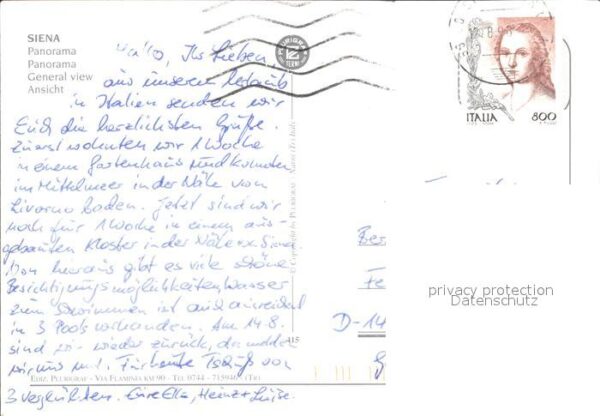 SIENA
Panorama
Panorama
General view
Ansicht
Hallo, Ihr Lieben,
aus unserem Urlaub
in Italien senden wir
Euch die herzlichsten Grüße.
Zuerst wohnten wir 1 Woche
in einem Gartenhaus und konnten
im Mittelmeer in der Nähe von
Livorno baden. Jetzt sind wir
noch für 1 Woche in einem aus-
gebauten Kloster in der Nähe v. Siena.
Von hier aus gibt es viele schöne
Besichtigungsmöglichkeiten. Wasser
zum Schwimmen ist auch ausreichend
in 3 Pools vorhanden. Am 14.8.
sind wir wieder zurück, da melden
wir uns mal. Für heute Tschüß von
EDIZ. PLURIGRAF - VIA FLAMINIA KM 90 - TEL 0744 - 715946 (TR)
3 Vergnügten. Eure Elke, Heinz + Luise.
PLURIGRAF
TERNI
ITALIA 800
D-14
privacy protection
Datenschutz